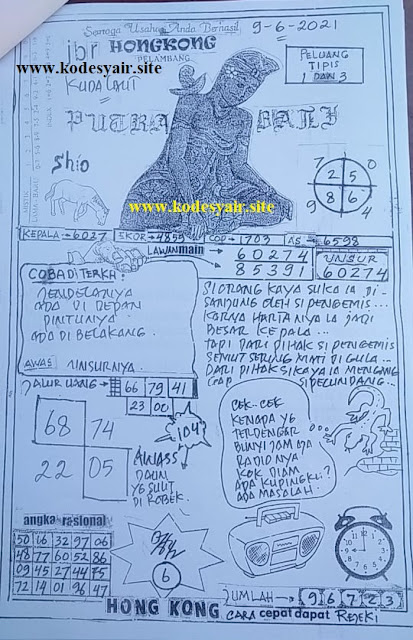 Semoga Usaha Anda Berhasil
9-6-2021
jbr HONGKONG
PELAMBANG
www.kodesyair.site
KUDA LAUT
PELUANG
TIPIS
1 DAN 3
PUTRA BALI
shio
7 0
2 5
8 6
9 4
www.kodesyair.site
KEPALA → 6027 EKOR → 4859 COP → 1703 AS → 6598
LAWAN main 60274
85391
UNSUR
60274
COBA DI TERKA:
JENDELANYA
ADA DI DEPAN
PINTUNYA
ADA DI BELAKANG.
AWAS UNSURNYA.
SI ORANG KAYA SUKA IA DI-
SANJUNG OLEH SI PENGEMIS...
KARNA HARTANYA IA JADI
BESAR KEPALA...
TAPI DARI PIHAK SI PENGEMIS
SEMUT SERING MATI DI GULA...
DARI PIHAK SI KAYA IA MENGANG
GAP SI PECUNDANG...
JALUR UANG → 66 79 41
23 00
104
68 74
22 05
AWASS
DAUN
YG SULIT
DI ROBEK.
CEK.. CEK
KENAPA YG
TERDENGAR
BUNYI JAM AJA
RADIO NYA
KOK DIAM
ADA KUPINGKU..?
ADA MASALAH.
angka rasional
50 16 32 97 06
48 77 60 52 86
09 45 27 44 75
72 14 01 96 47
6
JUMLAH → 9 6 7 2 3
HONG KONG CARA cepat dapat REJEKI